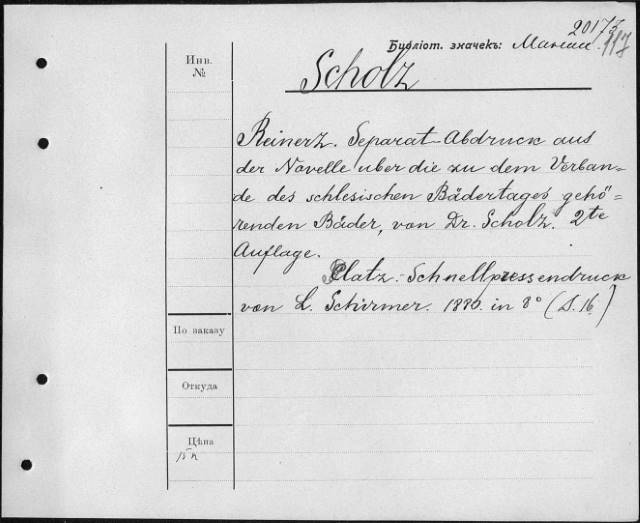 20173
Библіот. значекъ:
117
Инв.
№
Scholz
Reinerz. Separat-Abdruck aus
der Novelle uber die zu dem Verban=
de des schlesischen Bädertages gehö=
renden Bäder, von Dr. Scholz. 2te
Auflage.
Glatz. Schnellpressendruck
von L. Schirmer. 1880. in 8° (S. 16)
По заказу
Откуда
Цѣна